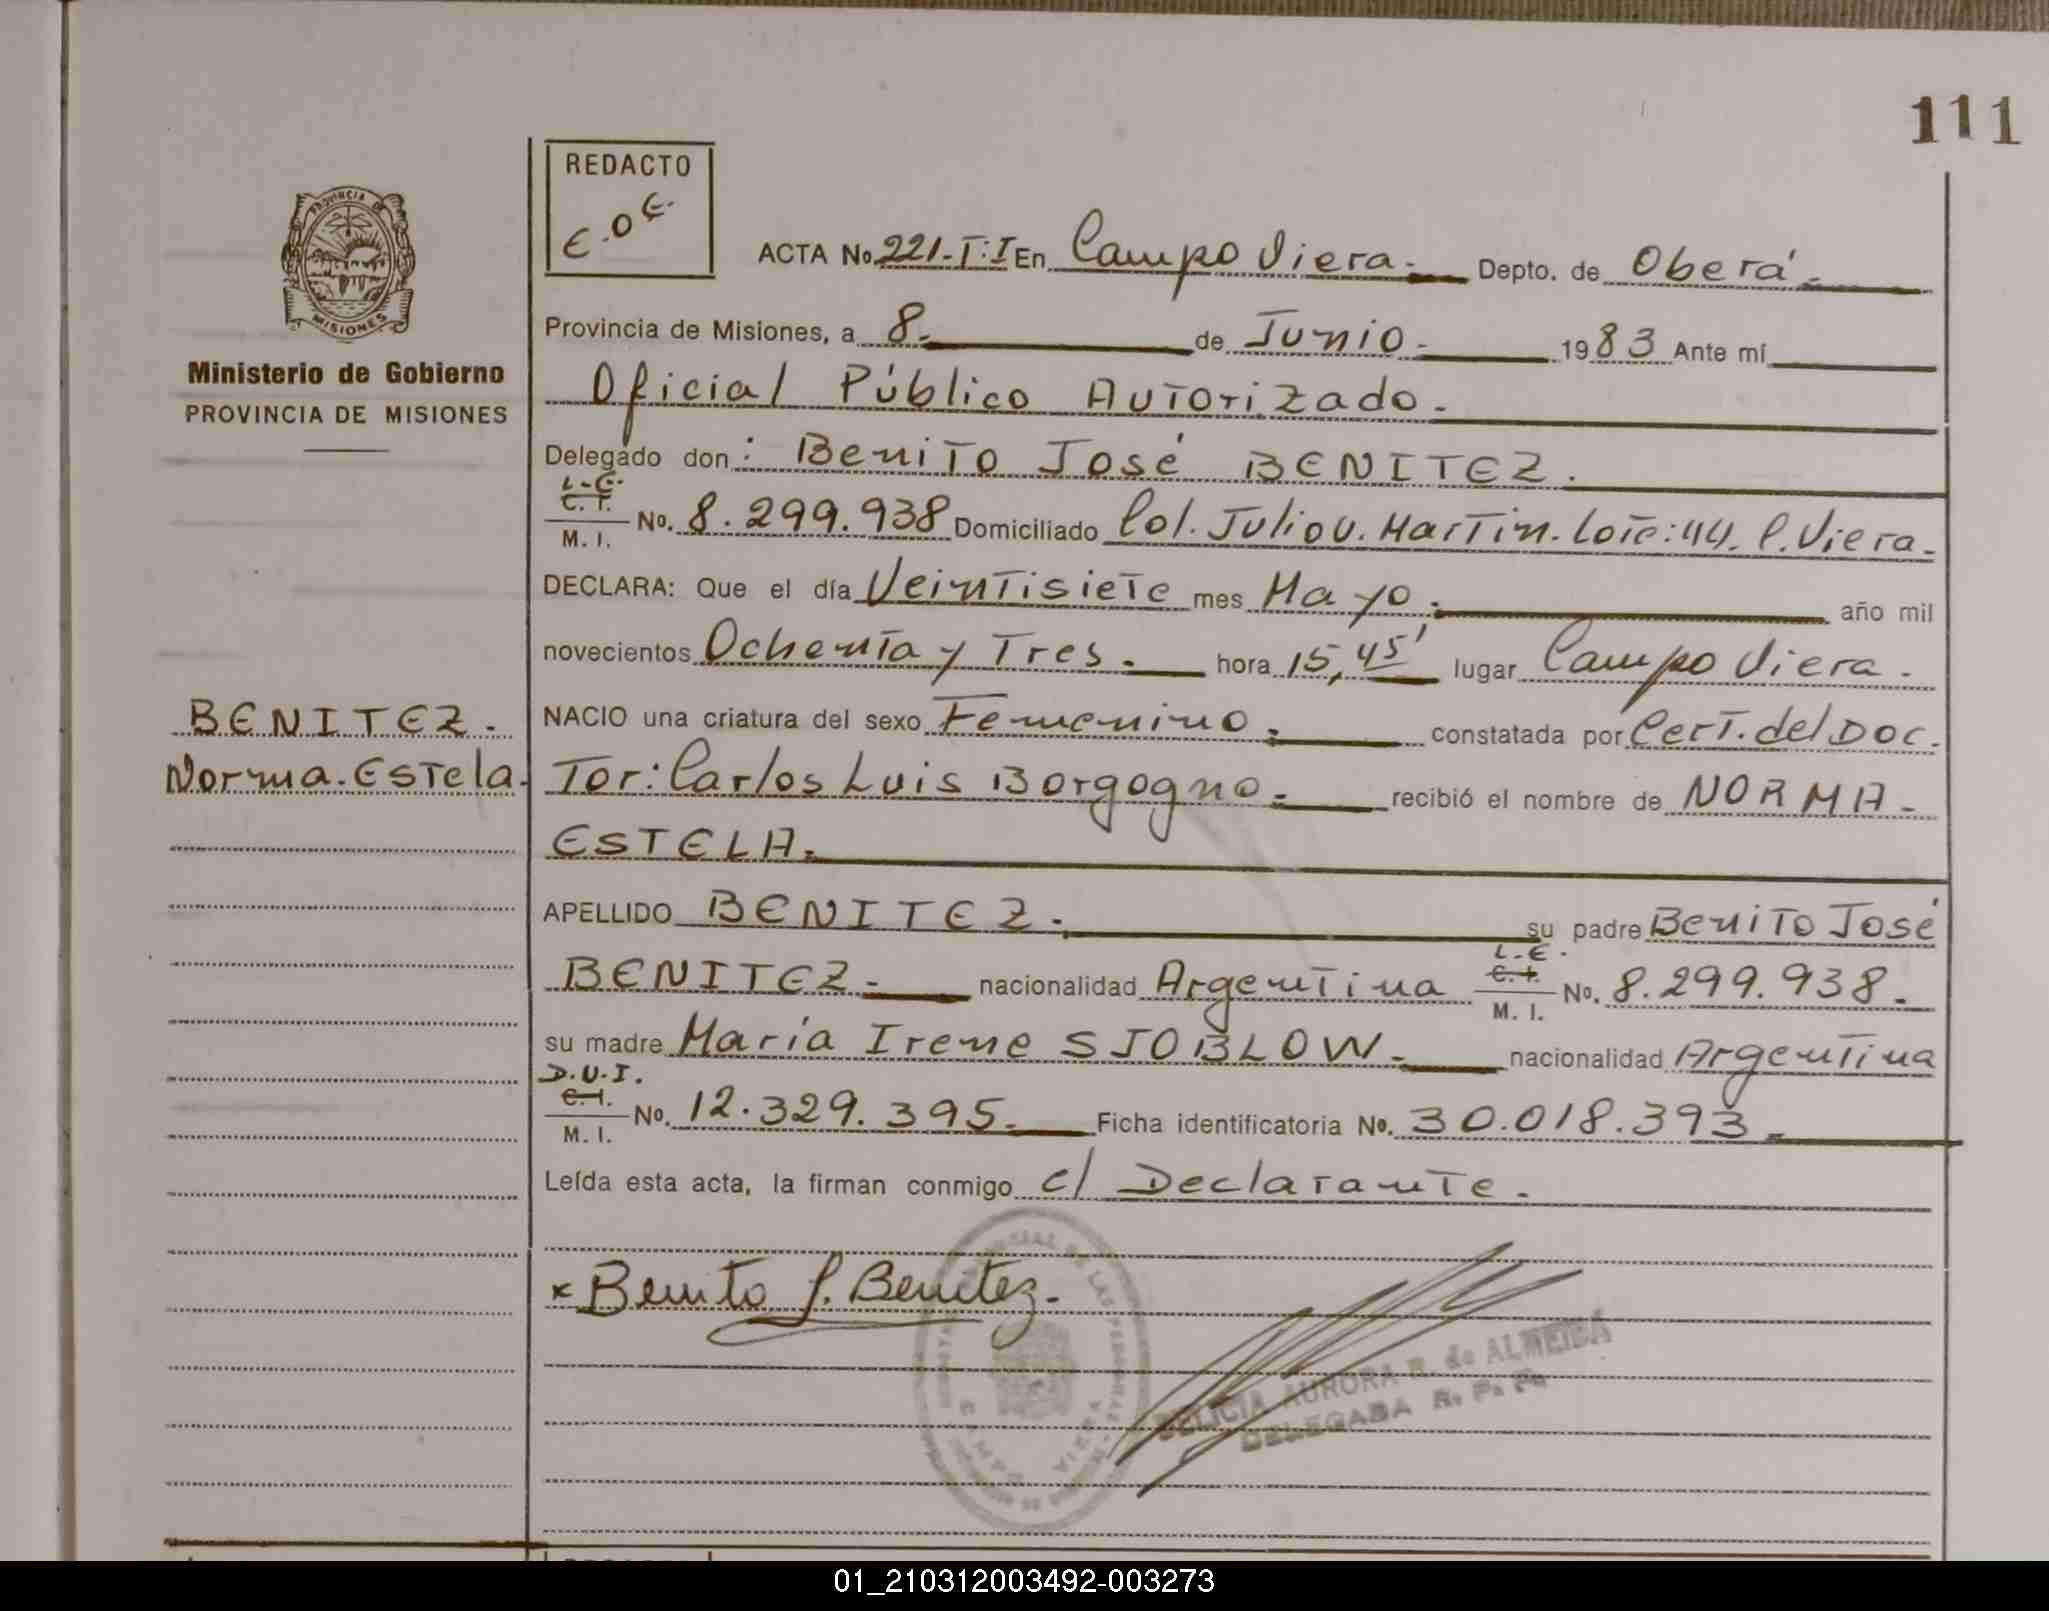 111
REDACTO
E.O.E.
ACTA No 221-T:I En Campo Viera.- Depto. de Oberá.-
PROVINCIA DE
MISIONES
Ministerio de Gobierno
PROVINCIA DE MISIONES
Provincia de Misiones, a 8.- de Junio.- 1983 Ante mí
Oficial Público Autorizado.-
Delegado don: Benito José BENITEZ.
L.E.
C. I.
M. I. No. 8.299.938 Domiciliado Col. Julio U. Martin. Lote:44. C. Viera.-
DECLARA: Que el día Veintisiete mes Mayo.- año mil
novecientos Ochenta y Tres.- hora 15,45' lugar Campo Viera.-
NACIO una criatura del sexo Femenino.- constatada por Cert. del Doc.
BENITEZ.
Norma.Estela.
Tor: Carlos Luis Borgogno.- recibió el nombre de NORMA-
ESTELA.-
APELLIDO BENITEZ.- su padre Benito José
BENITEZ.- nacionalidad Argentina L.E. C. I. M. I. No. 8.299.938.-
su madre María Irene SJOBLOW.- nacionalidad Argentina
D.U.I.
C. I.
M. I. No. 12.329.395.- Ficha identificatoria No. 30.018.393.-
Leída esta acta, la firman conmigo el Declarante.-
x Benito J. Benitez.-
DELICIA AURORA R. de ALMEIDA
DELEGADA R. P. Ps.
01_210312003492-003273